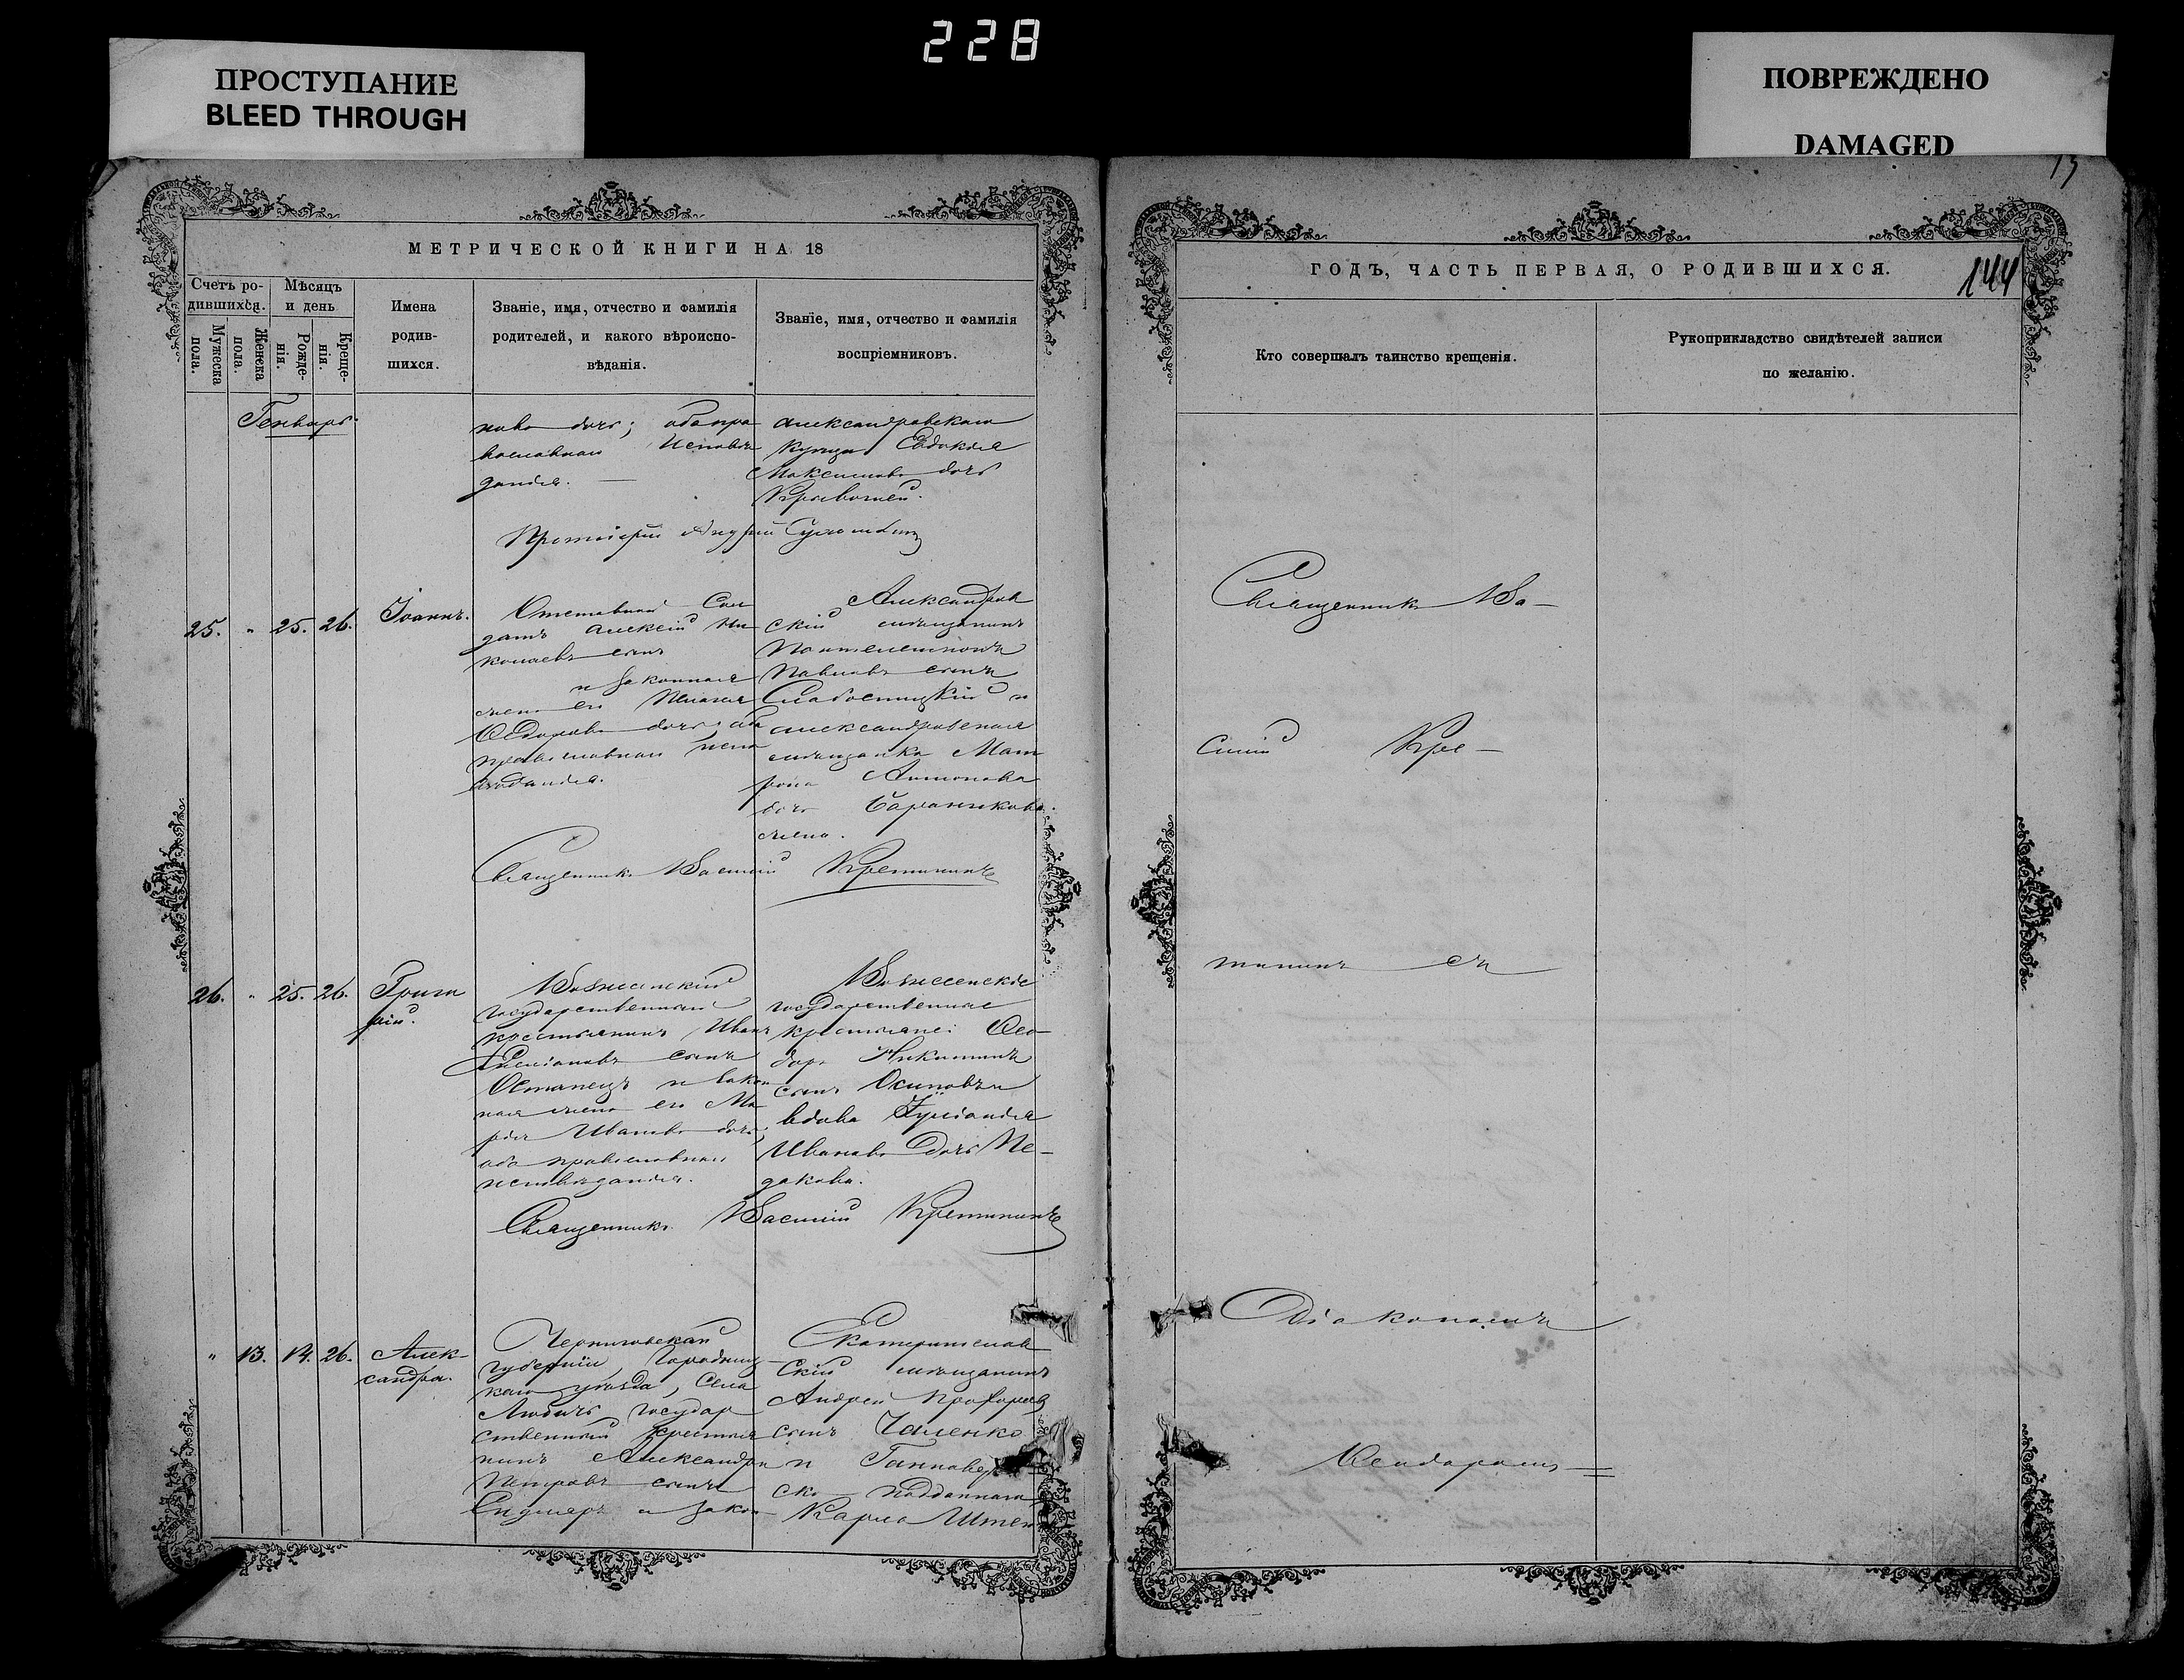 228
ПРОСТУПАНИЕ
BLEED THROUGH
ПОВРЕЖДЕНО
DAMAGED
МЕТРИЧЕСКОЙ КНИГИ НА 18
Счетъ ро-
дившихся.
Мужеска
пола.
Женска
пола.
Мѣсяцъ
и день
Рожде-
нія.
Креще-
нія.
Имена
родив-
шихся.
Званіе, имя, отчество и фамилія
родителей, и какого вѣроиспо-
вѣданія.
Званіе, имя, отчество и фамилія
воспріемниковъ.
Генварь.
нова дочь; оба пра
вославнаго исповѣ
данія.
Александровскаго
купца Евдокія
Максимова дочь
Протоіерей Андрей
25. " 25. 26.
Іоаннъ.
Отставной Сол
датъ Алексій Ни
колаевъ сынъ
и законная
жена его Пелагія
Ѳедорова дочь; оба
православнаго испо
вѣданія.
Александров
скій мѣщанинъ
Пантелеимонъ
Павловъ сынъ
и
Александровская
мѣщанка Мат
рона Антонова
дочь Баранникова
жена.
Священникъ Василій Крептининъ
26. " 25. 26.
Григо
рій.
Вознесенскій
государственный
крестьянинъ Иванъ
сынъ
и закон
ная жена его Ма
рія Иванова дочь;
оба православнаго
исповѣданія.
Вознесенскіе
государственные
крестьяне: Ѳео-
доръ Никитинъ
сынъ Осиповъ и
вдова Іуліанія
Иванова дочь Пе-
дакова.
Священникъ Василій Крептининъ
" 13. 14. 26.
Алек-
сандра.
Черниговской
губерніи, Городниц-
каго уѣзда, села
Любичъ государ
ственный крестья
нинъ Александръ
Петровъ сынъ
и закон
Екатеринослав
скій мѣщанинъ
Андрей
сынъ Чаленко
и Ганновер
ско подданнаго
Карла Штен
15
ГОДЪ, ЧАСТЬ ПЕРВАЯ, О РОДИВШИХСЯ.
144
Кто совершалъ таинство крещенія.
Рукоприкладство свидѣтелей записи
по желанію.
Священникъ Ва-
силій Кре-
птининъ съ
Діакономъ